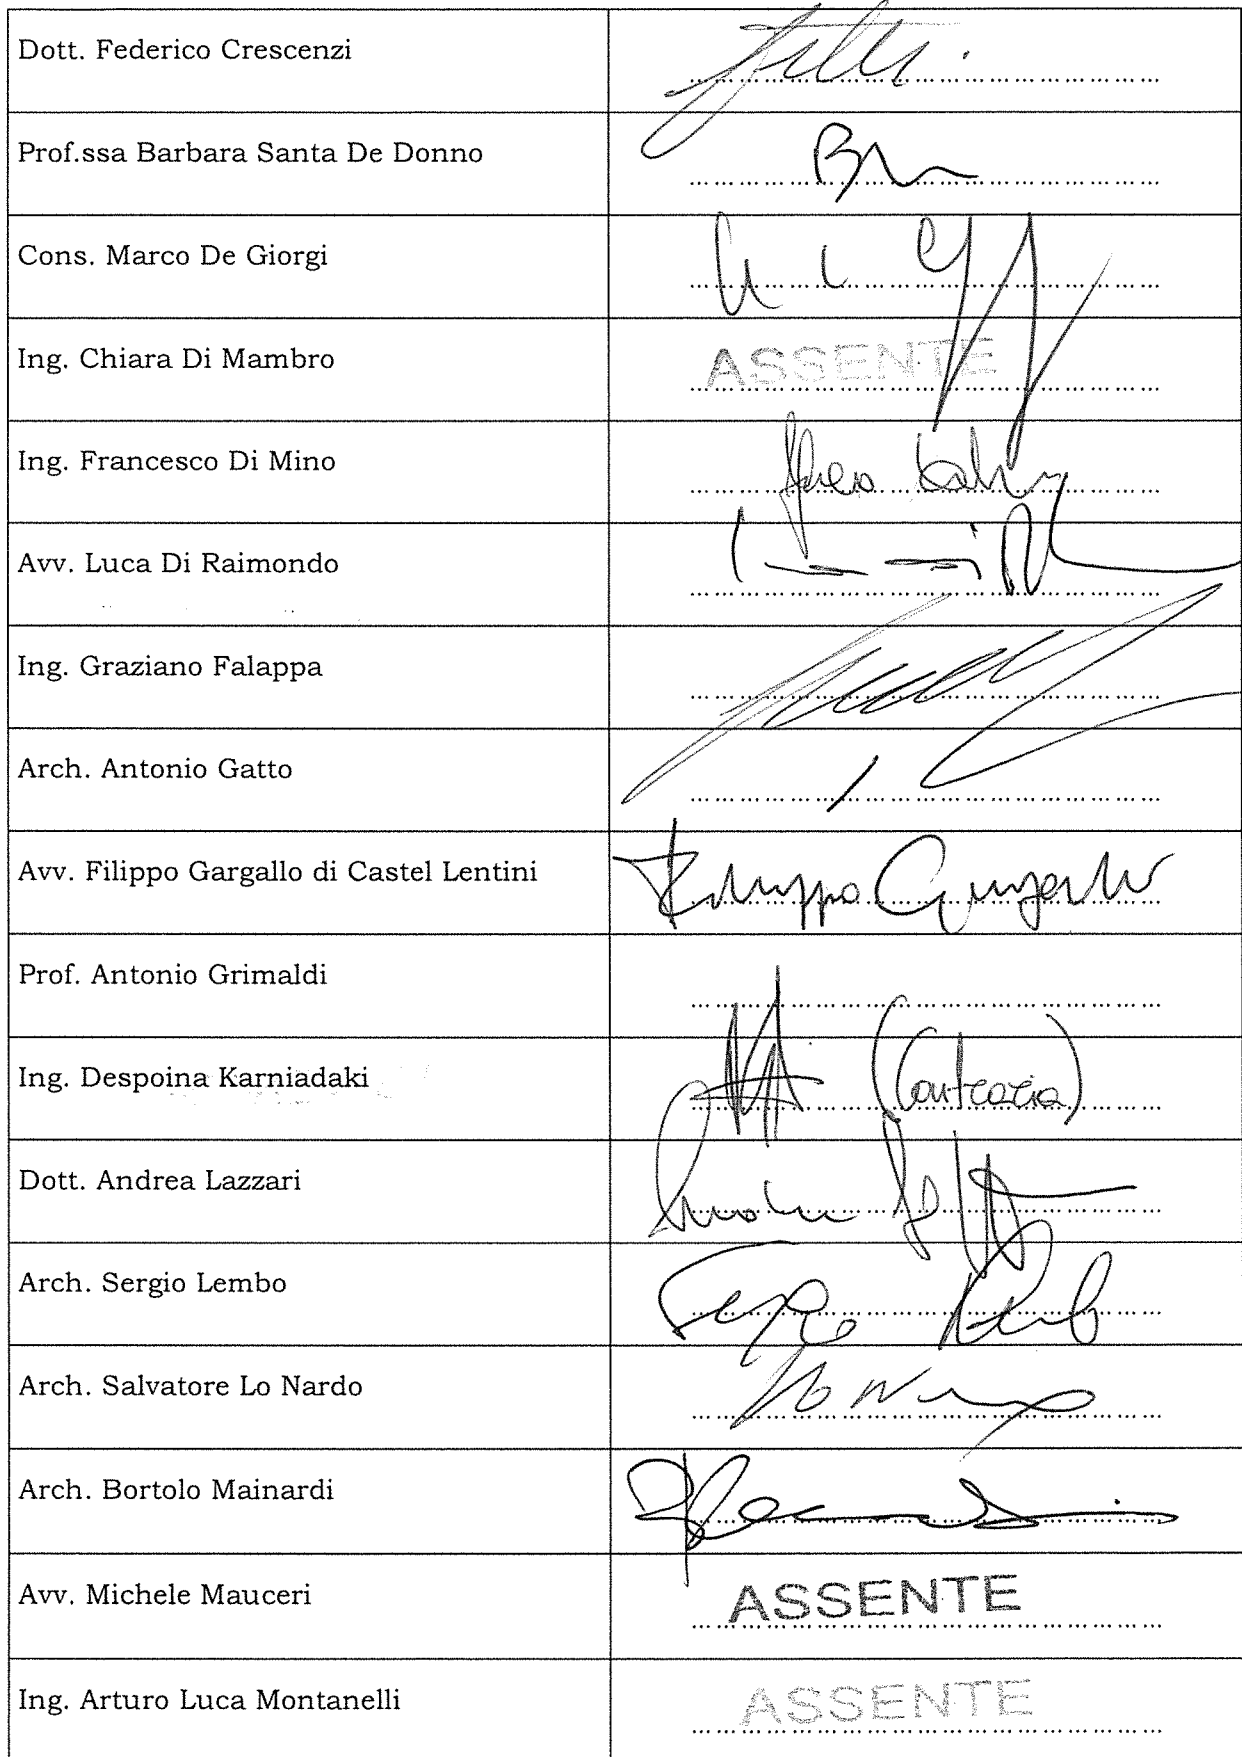 Dott. Federico Crescenzi
Prof.ssa Barbara Santa De Donno
Cons. Marco De Giorgi
Ing. Chiara Di Mambro ASSENTE
Ing. Francesco Di Mino
Avv. Luca Di Raimondo
Ing. Graziano Falappa
Arch. Antonio Gatto
Avv. Filippo Gargallo di Castel Lentini Filippo Gargallo
Prof. Antonio Grimaldi
Ing. Despoina Karniadaki (Contraria)
Dott. Andrea Lazzari
Arch. Sergio Lembo
Arch. Salvatore Lo Nardo
Arch. Bortolo Mainardi
Avv. Michele Mauceri ASSENTE
Ing. Arturo Luca Montanelli ASSENTE